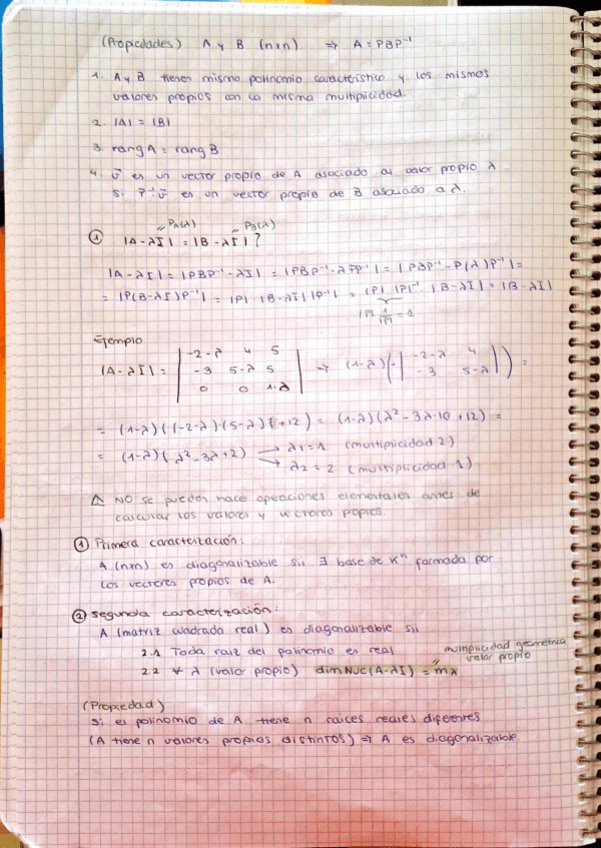 (Propiedades) A y B (nxn) ⇒ A = PBP⁻¹
1. A y B tienen mismo polinomio característico y los mismos
valores propios con la misma multiplicidad.
2. |A| = |B|
3. rang A = rang B
4. v̄ es un vector propio de A asociado al valor propio λ
si P⁻¹v̄ es un vector propio de B asociado a λ.
P_A(λ) P_B(λ)
① |A - λI| = |B - λI| ?
|A - λI| = |PBP⁻¹ - λI| = |PBP⁻¹ - λPP⁻¹| = |PBP⁻¹ - P(λ)P⁻¹| =
= |P(B-λI)P⁻¹| = |P| |B-λI| |P⁻¹| = |P| |P|⁻¹ |B-λI| = |B-λI|
|P| 1/|P| = 1
Ejemplo
-2-λ 4 5
|A - λI| = -3 5-λ 5 → (1-λ)(-| -2-λ 4 -3 5-λ |) =
0 0 1-λ
= (1-λ)((-2-λ)·(5-λ)+12) = (1-λ)(λ²-3λ-10+12) =
= (1-λ)(λ²-3λ+2) → λ₁=1 (multiplicidad 2)
→ λ₂=2 (multiplicidad 1)
⚠ NO se pueden hacer operaciones elementales antes de
calcular los valores y vectores propios.
① Primera caracterización:
A (nxn) es diagonalizable sii ∃ base de Kⁿ formada por
los vectores propios de A.
② Segunda caracterización:
A (matriz cuadrada real) es diagonalizable sii
2.1 Toda raíz del polinomio es real
multiplicidad geométrica
valor propio
2.2 ∀ λ (valor propio) dim Nuc(A-λI) = mλ
(Propiedad)
Si el polinomio de A tiene n raíces reales diferentes
(A tiene n valores propios distintos) ⇒ A es diagonalizable